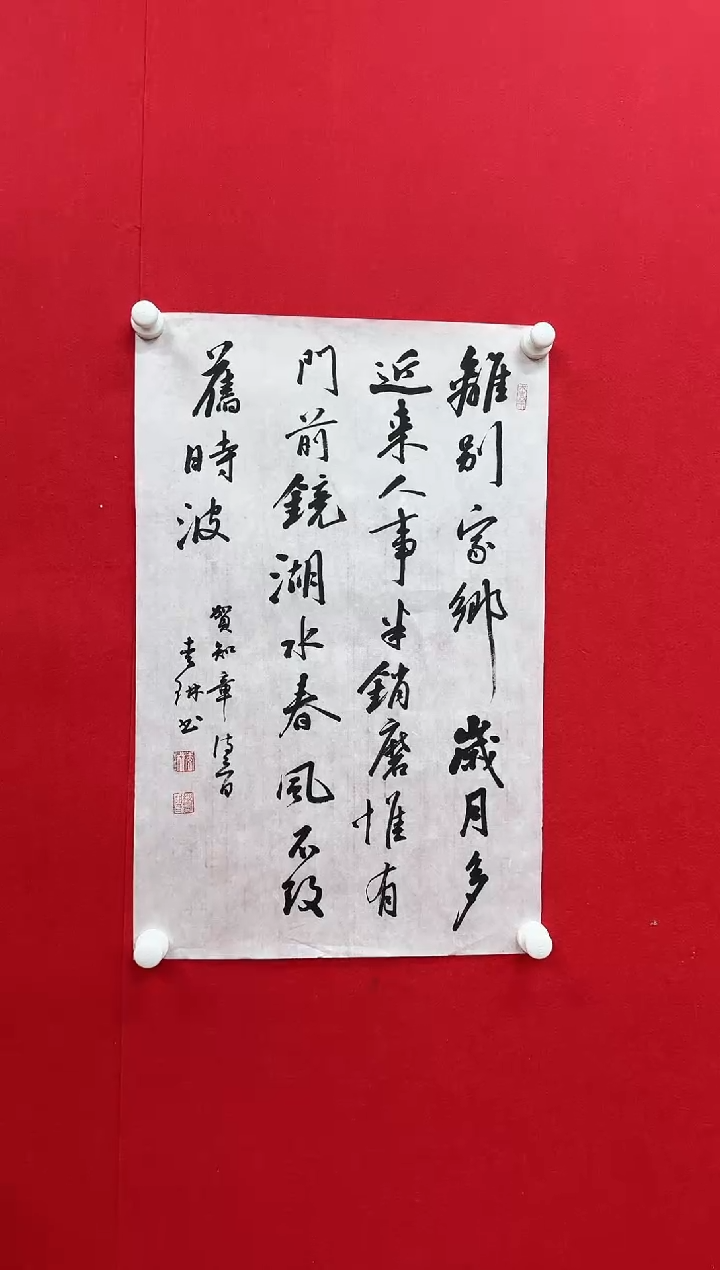 離別家鄉歲月多
近来人事半銷磨惟有
門前鏡湖水春風不改
舊時波
賀知章诗一首
琳书